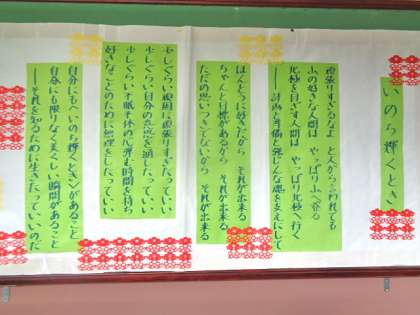 いのち輝くとき
頑張りすぎるなよ と人から言われても
山の好きな人間は やっぱり山へ登る
北極を目ざす人間は やっぱり北極へ行く
——計画と準備と強じんな魂を支えにして
ほんとうに好きだから それが出来る
ちゃんと目標があるから それが出来る
ただの思いつきでないから それが出来る
少しぐらい頑固に頑張りすぎたっていい
少しぐらい自分の意志を通したっていい
少しぐらい不眠不休の心弾む時間を持ち
好きなことのために無理をしたっていい
自分にもいのち輝くときがあること
自分にも限りなく美しい瞬間があること
——それを知るために生きたっていいのだ